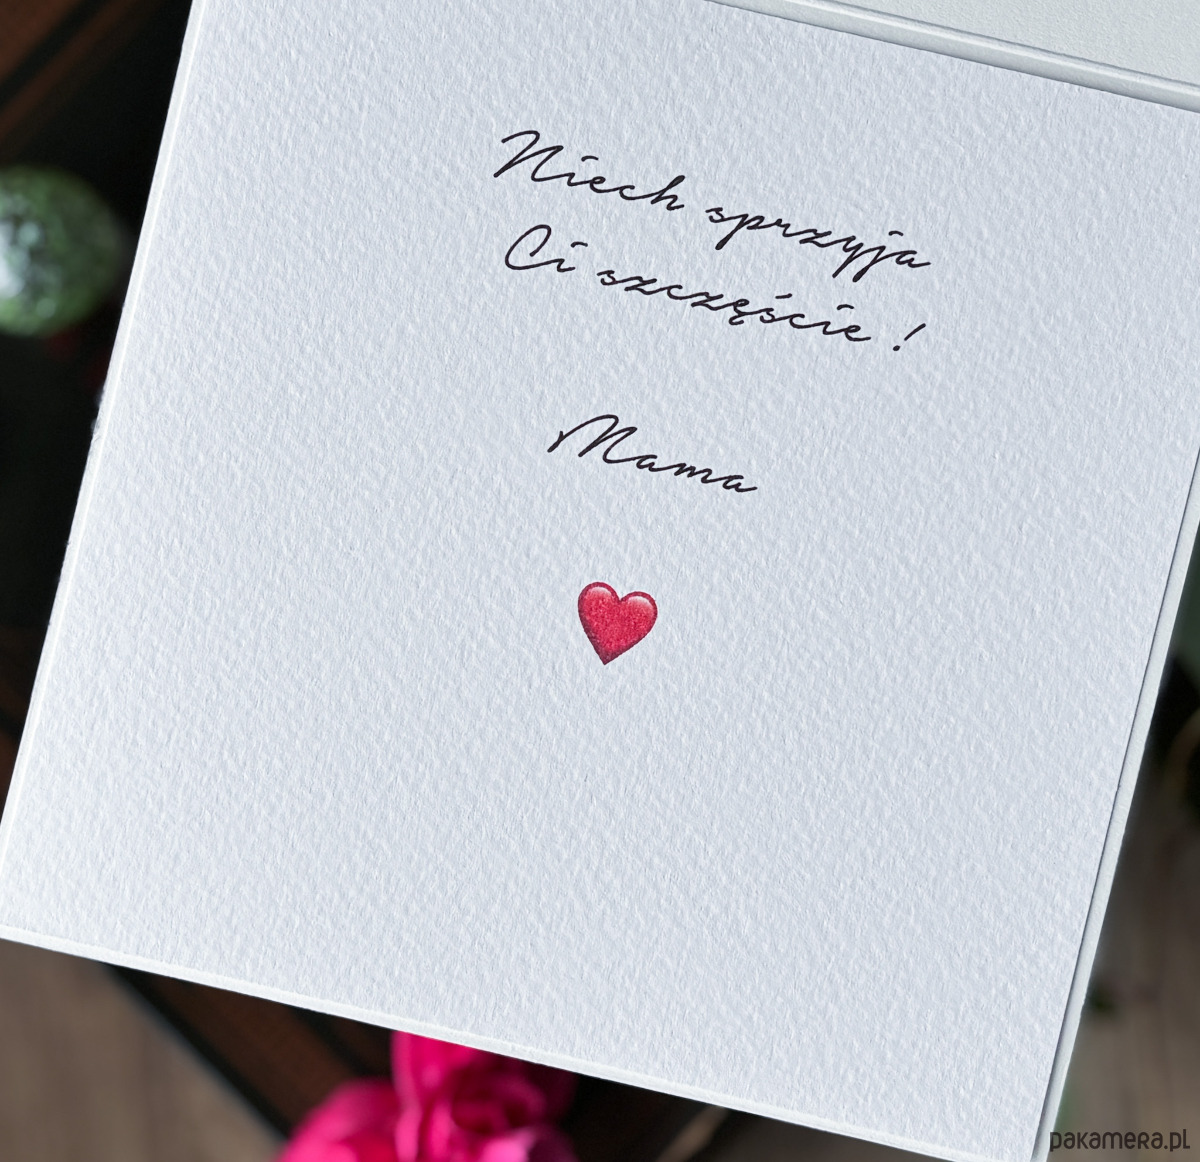 Niech sprzyja
Ci szczęście !
Mama
pakamera.pl